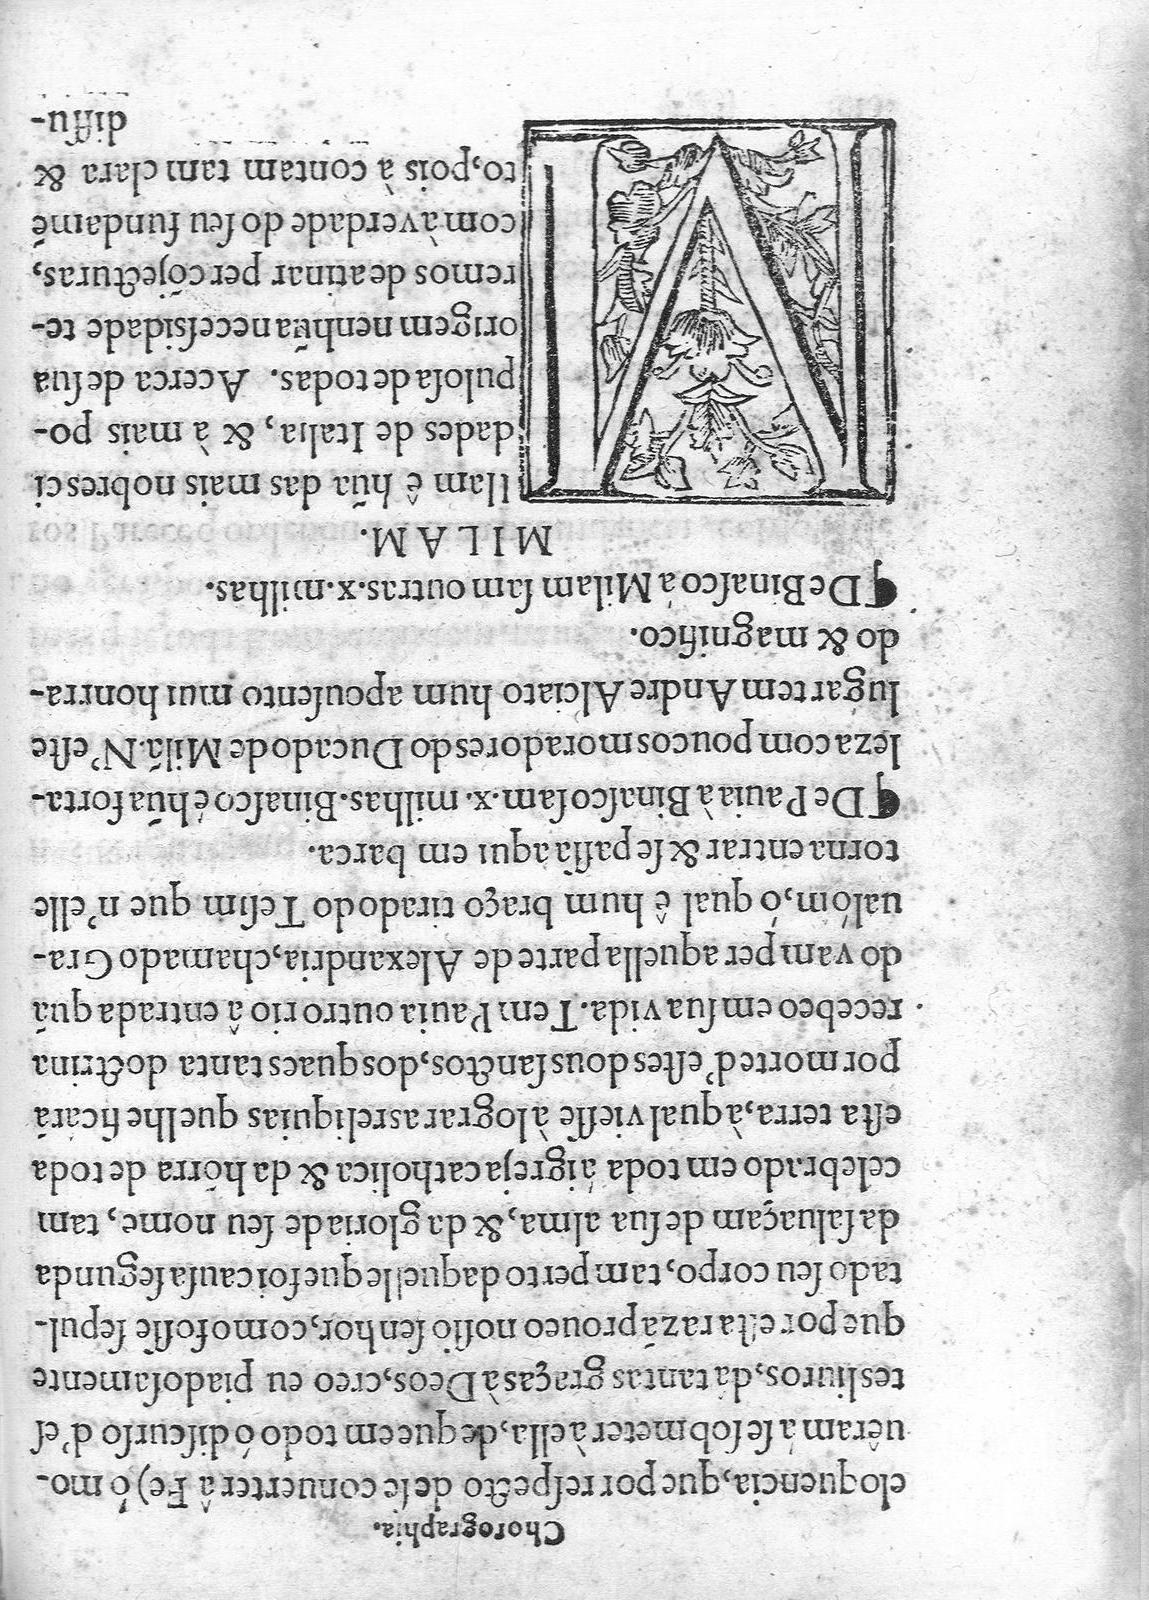 Chorographia.
eloquencia, que, por respecto de se conuerter â Fe) ó mo-
uêram á se sobmeter à ella, de que em todo ó discurso d'es
tes liuros, dá tantas graças à Deos, creo eu piadosamente
que por esta razá proueo nosso senhor, como fosse sepul-
tado seu corpo, tam perto daquelle que foi causa segunda
da saluaçam de sua alma, & da gloria de seu nome, tam
celebrado em toda á igreja catholica & da hõrra de toda
esta terra, à qual viesse à lograr as reliquias que lhe ficarã
por morte d'estes dous sanctos, dos quaes tanta doctrina
recebeo em sua vida. Tem Pauia outro rio â entrada quã
do vam per aquella parte de Alexandria, chamado Gra-
ualóm, ó qual ê hum braço tirado do Tesim que n'elle
torna entrar & se passa aqui em barca.
¶ De Pauia à Binasco sam .x. milhas. Binasco ê hũa forta-
leza com poucos moradores do Ducado de Milã. N'este
lugar tem Andre Alciato hum apousento mui honrra-
do & magnifico.
¶ De Binasco á Milam sam outras .x. milhas.
MILAM.
Mllam ê hũa das mais nobres ci
dades de Italia, & à mais po-
pulosa de todas. Acerca de sua
origem nenhũa necessidade te-
remos de atinar per cõjecturas,
com à verdade do seu fundamẽ
to, pois à contam tam clara &
diffu-